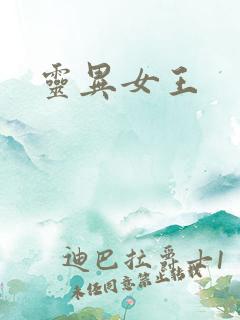 靈異女王
迪巴拉爵士1
未经同意禁止转载